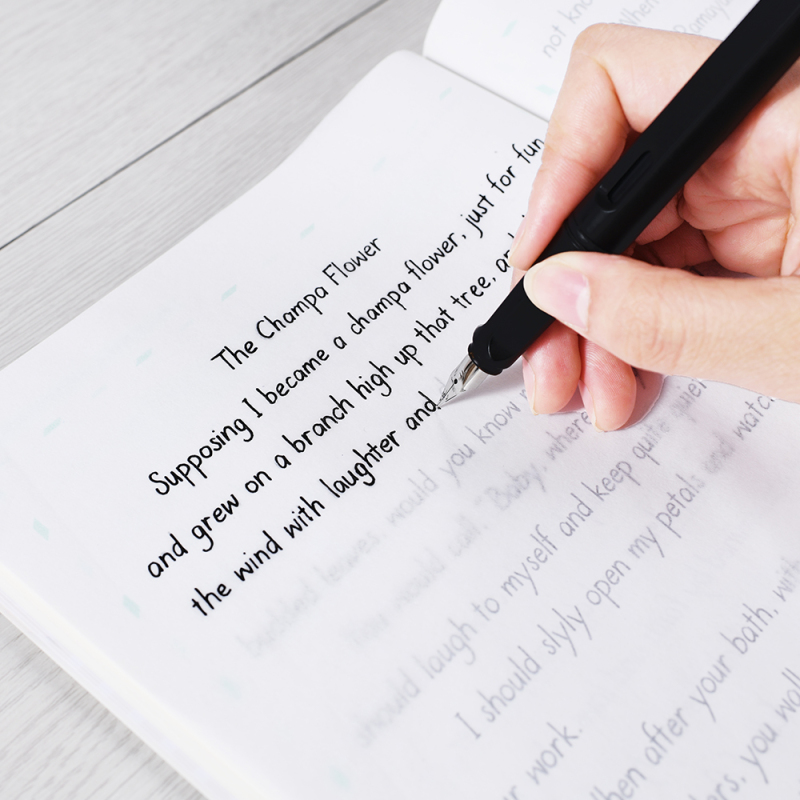 not kno When
The Champa Flower
Supposing I became a champa flower, just for fun
and grew on a branch high up that tree, and
the wind with laughter and
budded leaves, would you know
You would call, "Baby, where
should laugh to myself and keep quite quiet
I should slyly open my petals and watch
r work.
hen after your bath, with
ers, you wal